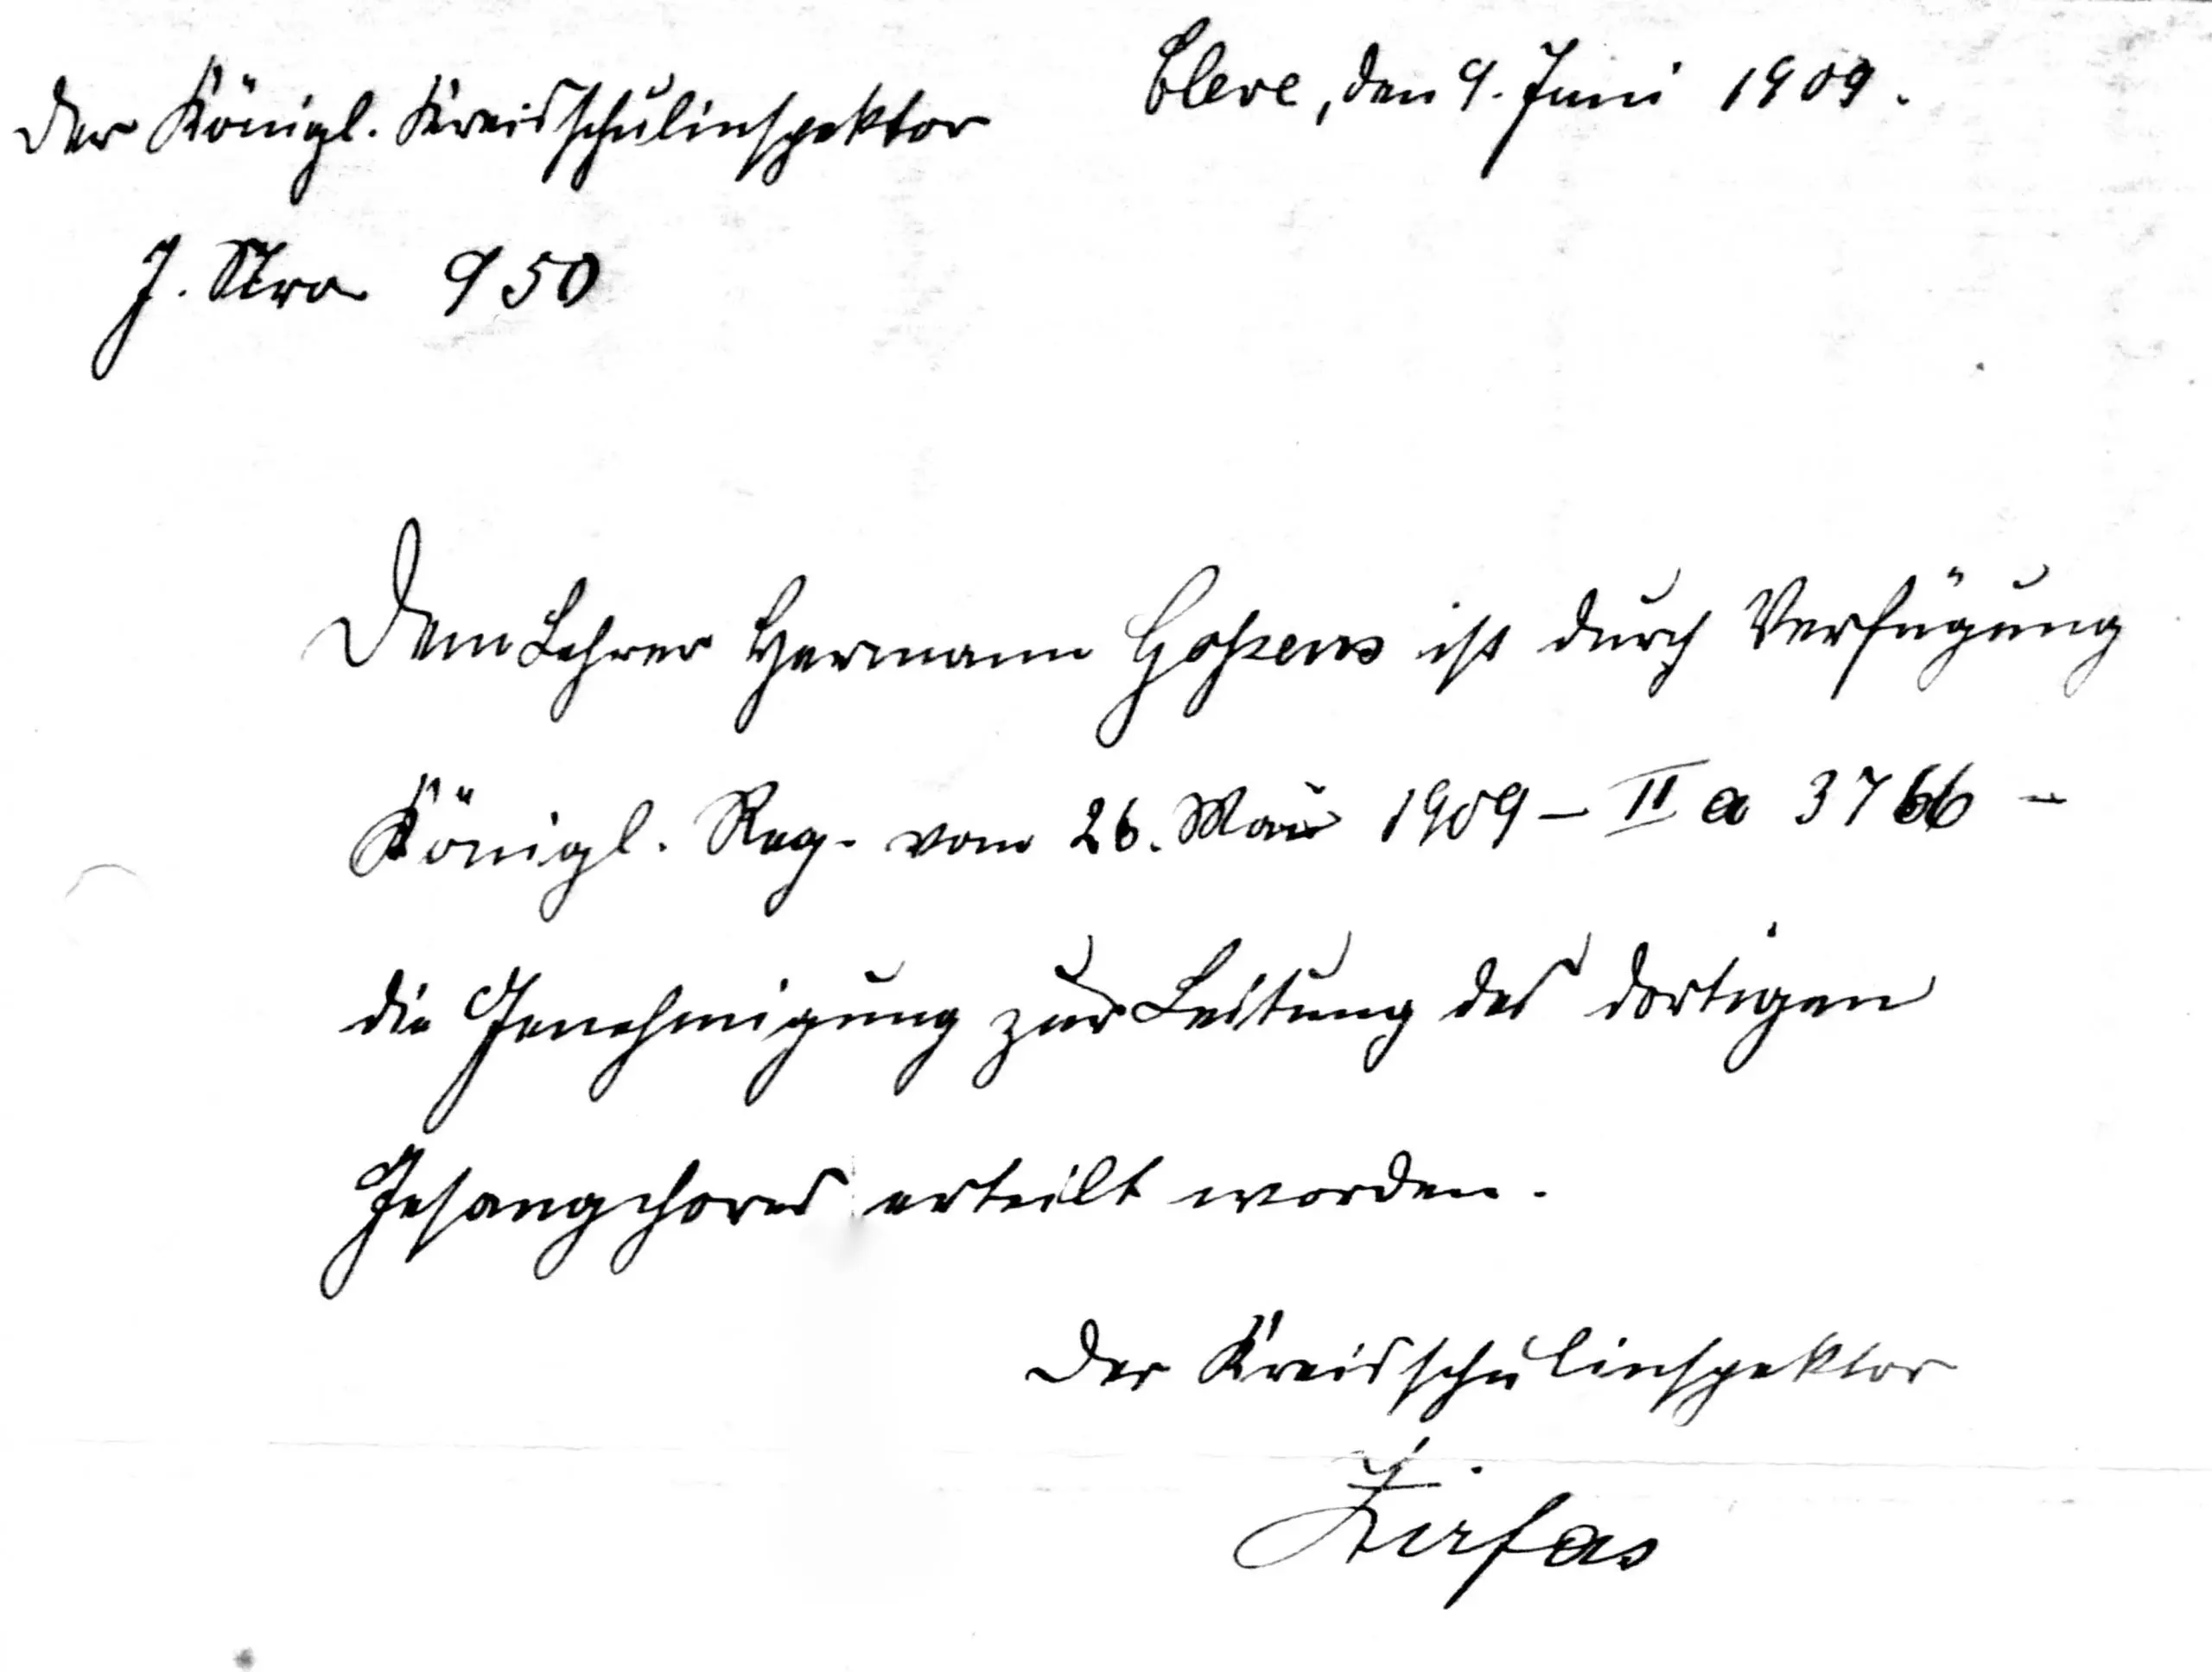 Der Königl. Kreisschulinspektor
Cleve, den 9. Juni 1909.
J. Nro 950
Dem Lehrer Hermann ist durch Verfügung
Königl. Reg. vom 26. Mai 1909 – II a 3766 –
die Genehmigung zur Leitung des dortigen
Gesangchores erteilt worden.
Der Kreisschulinspektor
Kirfas